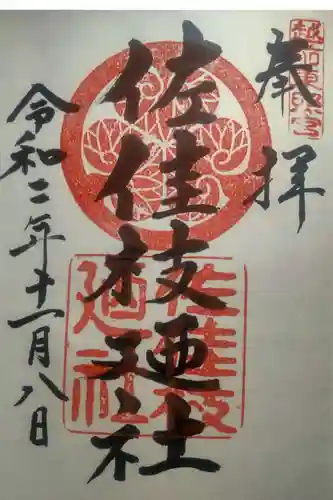 越前東照宮
奉拝
佐佳枝廼社
佐佳枝廼社
令和二年十一月八日